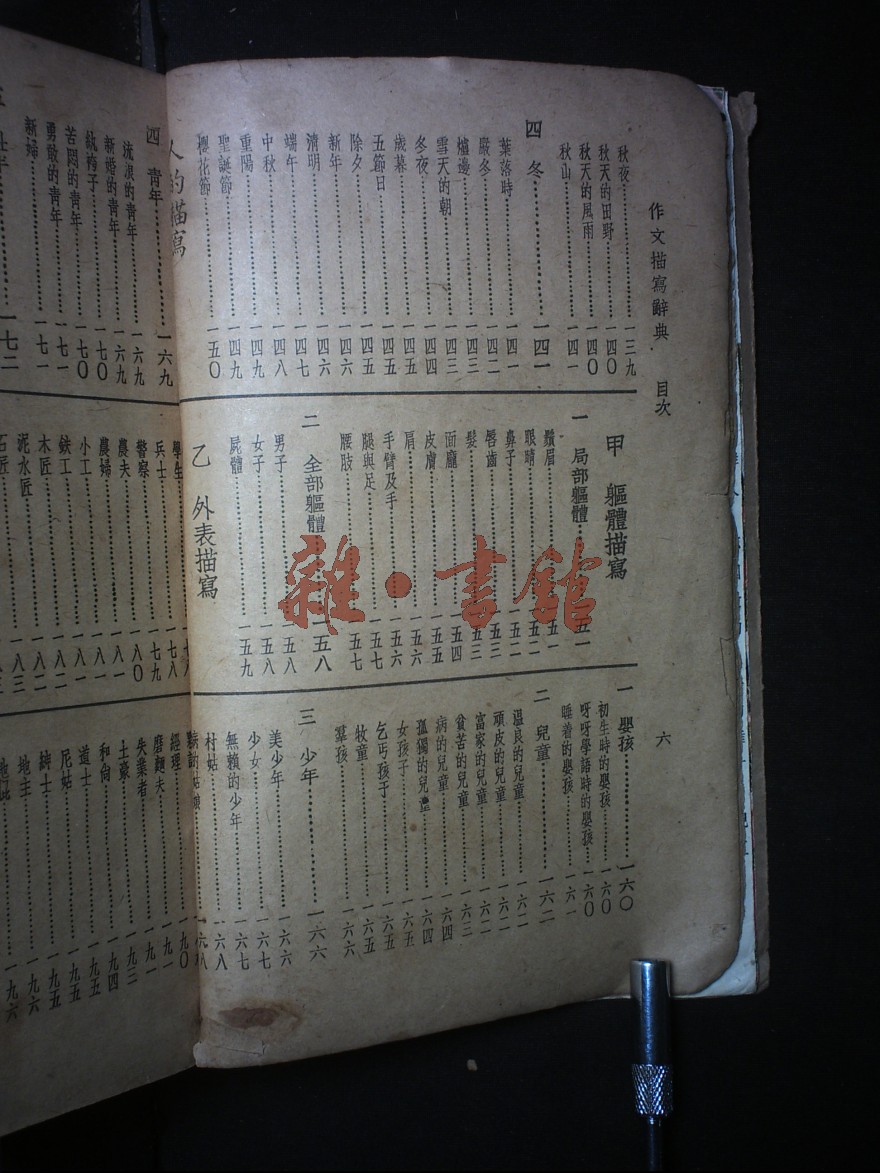 作文描寫辭典　目次
六
秋夜……一三九
秋天的田野……一四〇
秋天的風雨……一四〇
秋山……一四一
四　冬……一四一
葉落時……一四一
嚴冬……一四二
爐邊……一四三
雪天的朝……一四三
冬夜……一四四
歲暮……一四五
五節日……一四五
除夕……一四五
新年……一四六
清明……一四六
端午……一四七
中秋……一四八
重陽……一四九
聖誕節……一四九
櫻花節……一五〇
人的描寫
甲　軀體描寫
一　局部軀體……五一
鬚眉……一五一
眼睛……一五一
鼻子……一五二
唇齒……一五二
髮……一五三
面龐……一五四
皮膚……一五五
肩……一五六
手臂及手……一五六
腿與足……一五七
腰肢……一五七
二　全部軀體……一五八
男子……一五八
女子……一五八
屍體……一五九
乙　外表描寫
一　嬰孩……一六〇
初生時的嬰孩……一六〇
呀呀學語時的嬰孩……一六〇
睡着的嬰孩……一六一
二　兒童……一六二
溫良的兒童……一六二
頑皮的兒童……一六二
富家的兒童……一六二
貧苦的兒童……一六三
病的兒童……一六四
孤獨的兒童……一六四
女孩子……一六五
乞丐孩子……一六五
牧童……一六五
羣孩……一六六
三　少年……一六六
美少年……一六六
少女……一六七
無賴的少年……一六七
村姑……一六八
一六八
四　青年……一六九
流浪的青年……一六九
新婚的青年……一六九
紈袴子……一七〇
苦悶的青年……一七〇
勇敢的青年……一七一
新婦……一七一
一七二
學生
兵士……一七八
警察……一七九
農夫……一八〇
農婦……一八一
小工……一八一
鉄工……一八二
木匠……一八二
泥水匠……一八三
石匠
經理……一九〇
磨麵夫……一九一
失業者……一九一
土豪……一九三
和尙……一九四
道士……一九五
尼姑……一九五
紳士……一九五
地主……一九六
一九六
雜·書館